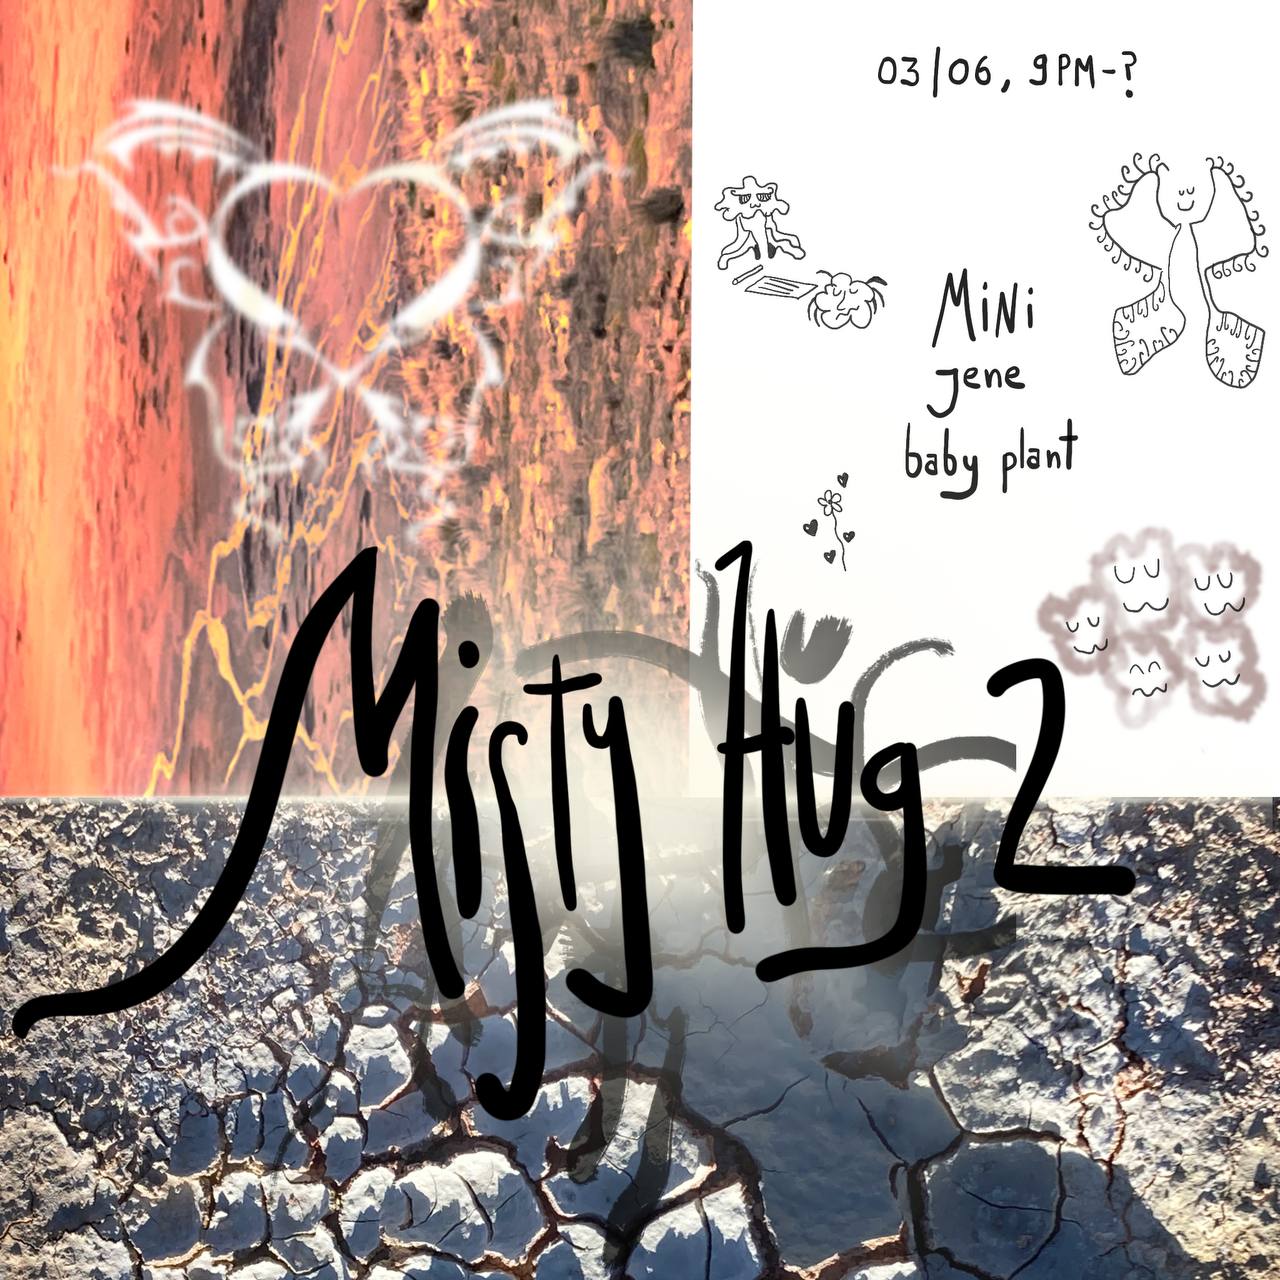 03/06, 9PM-?
MiNi
jene
baby plant
Misty Hug 2